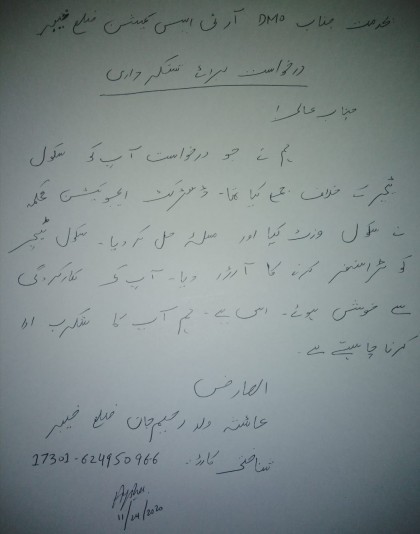 بخدمت جناب DMO آر ٹی ایس کمیشن ضلع خیبر
درخواست برائے شکر واری
جناب عالی!
ہم نے جو درخواست آپ کو سکول
ٹیچر کے خلاف جمع کیا تھا۔ ڈسٹرکٹ ایجوکیشن محکمہ
نے سکول وزٹ کیا اور مسئلہ حل کر دیا۔ سکول ٹیچر
کو ٹرانسفر کرنے کا آرڈر دیا۔ آپ کی کارکردگی
سے خوش ہوئے۔ اسی ہے۔ ہم آپ کا شکریہ ادا
کرنا چاہتے ہے۔
العارض
ولد رحیم جان ضلع خیبر
شناختی کارڈ: 17301-624950966
11/24/2020